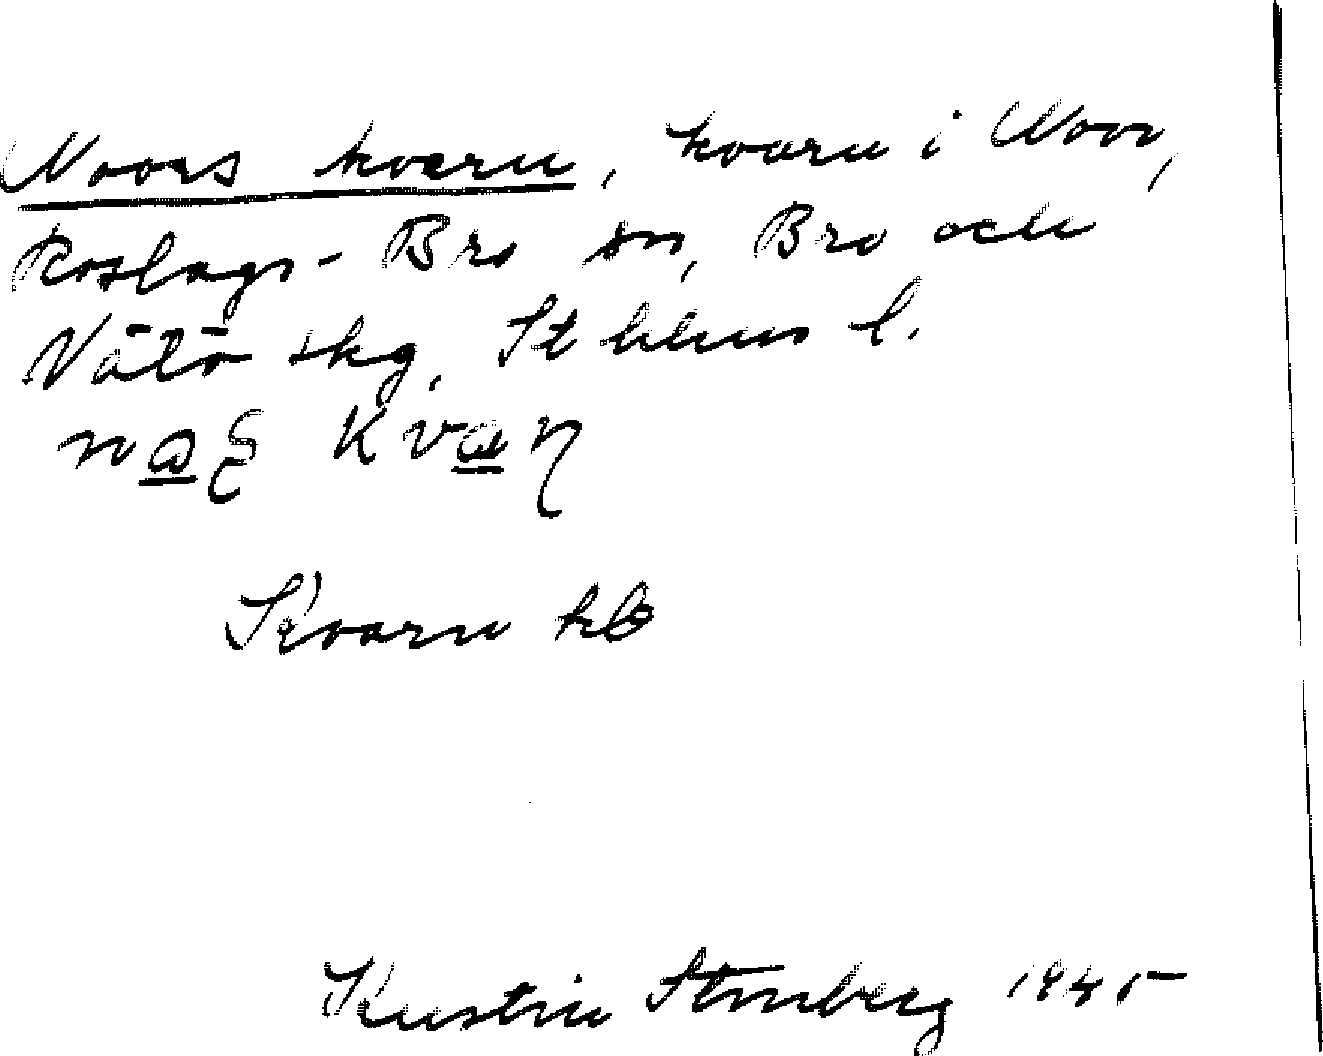 Noors kvarn, kvarn i Noor,
Roslags-Bro sn, Bro och
Vätö skg, Sthlms l.
Kvarn kb
Kerstin Stenberg 1945